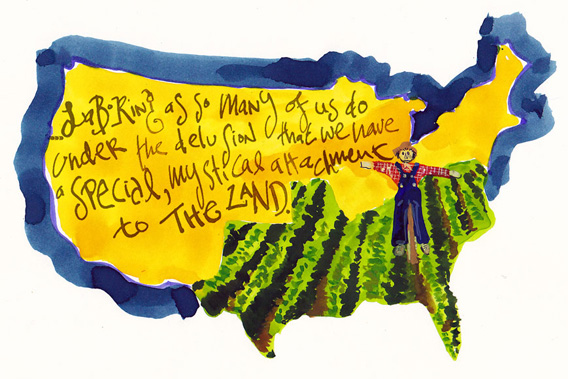 ...LaBoRinG as so many of us do
under the delusion that we have
a special, mystical attachment
to THE LAND.